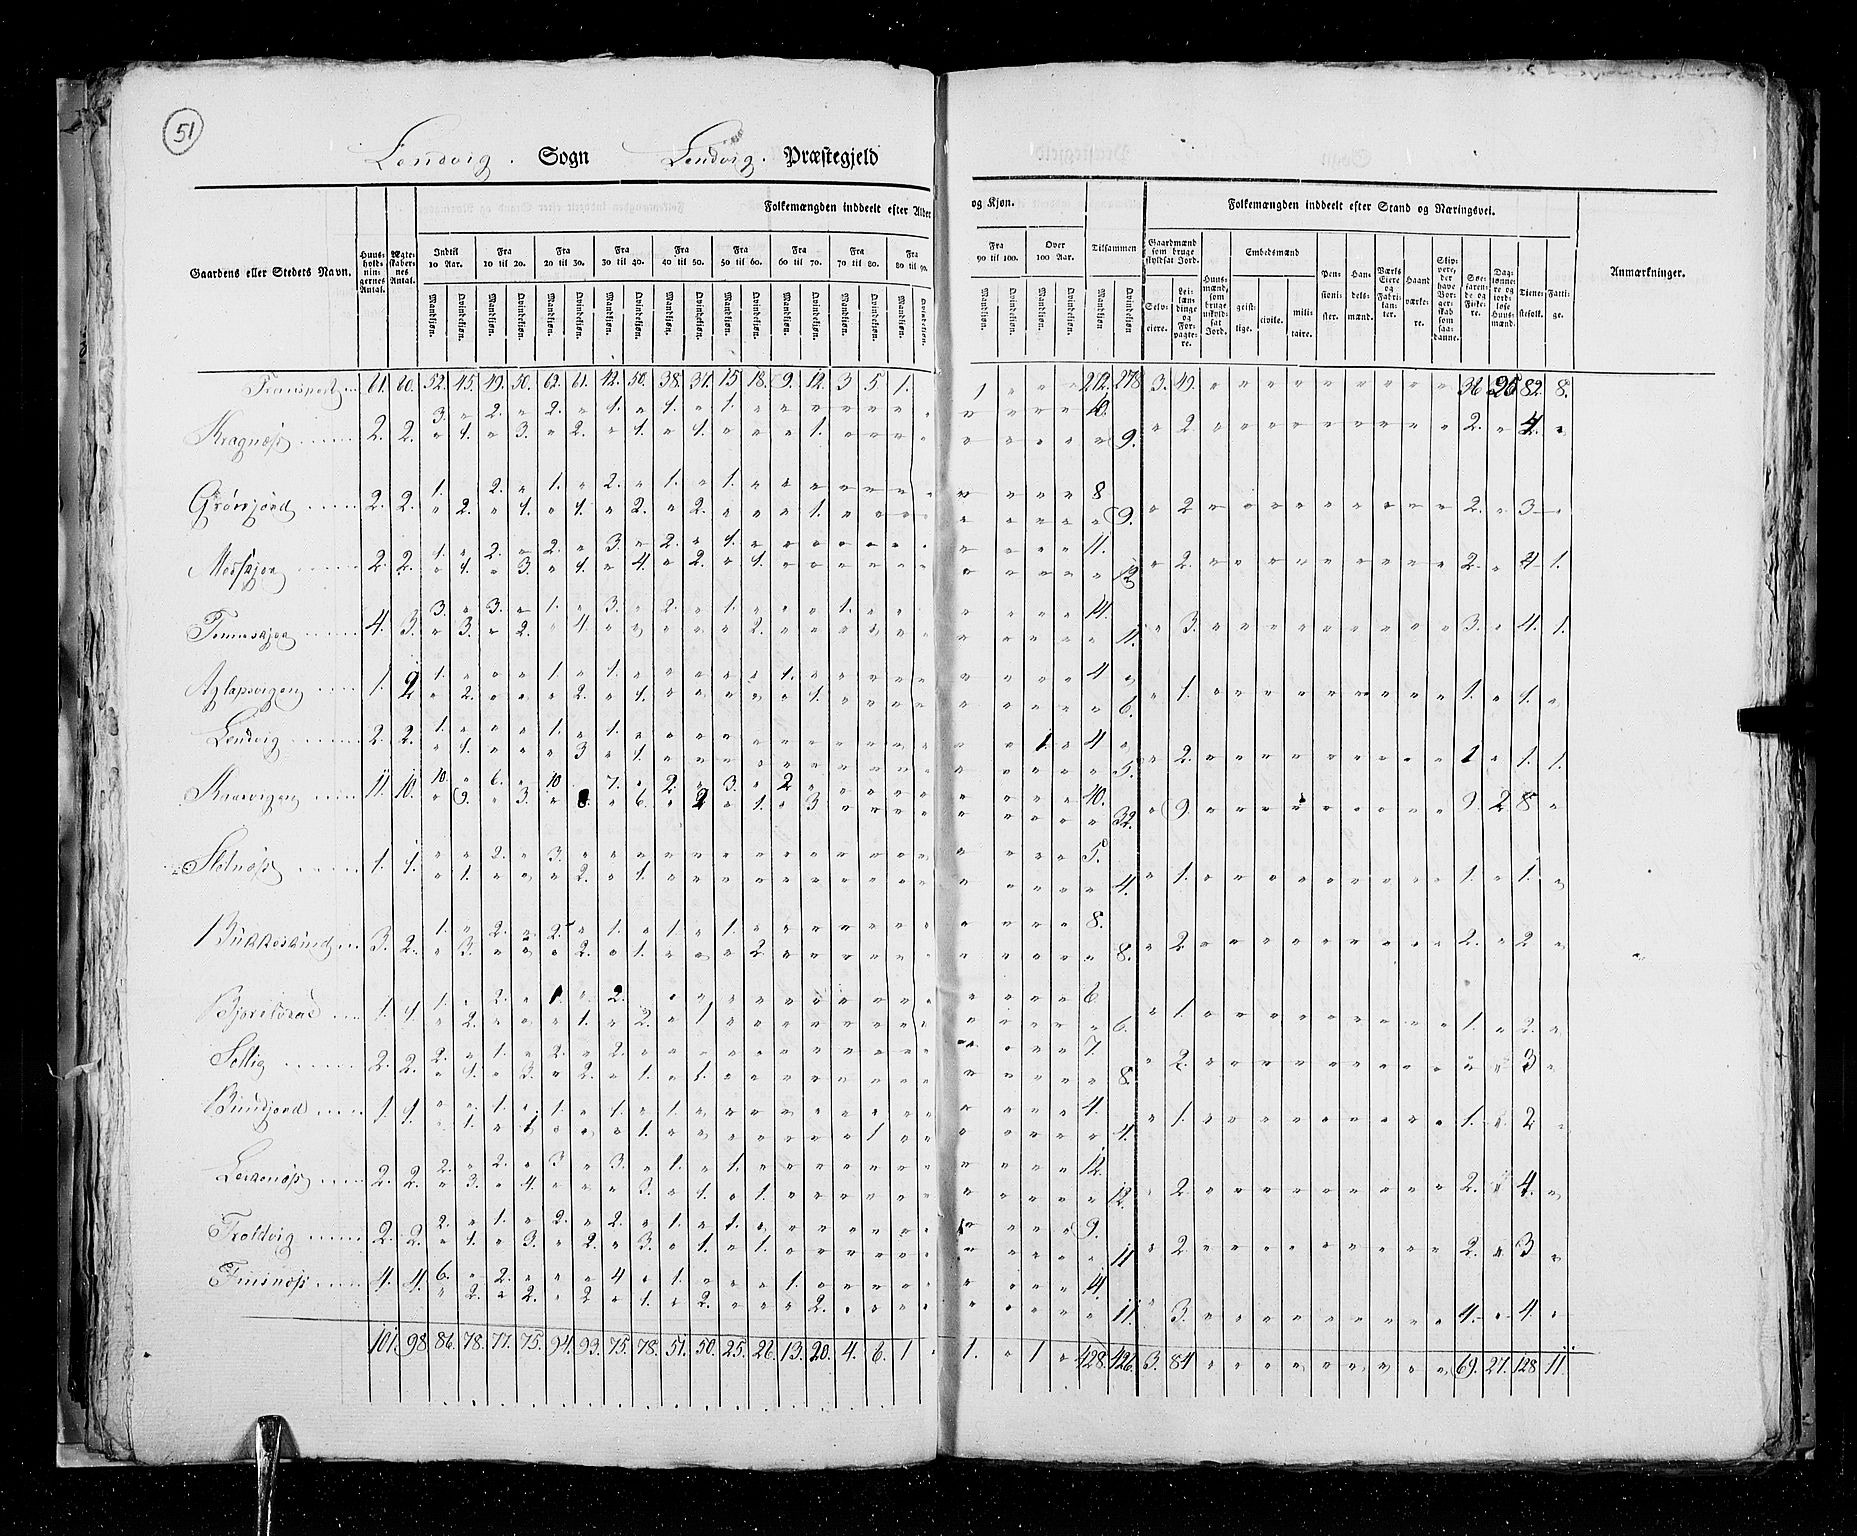 51
Lenvig. Sogn Lenvig. Præstegjeld
Folkemængden inddeelt efter Alder og Kjøn. Folkemængden inddeelt efter Stand og Næringsvei.
Gaardens eller Stedets Navn. Huusholdningernes Antal. Ægteskabernes Antal. Indtil 10 Aar. Fra 10 til 20. Fra 20 til 30. Fra 30 til 40. Fra 40 til 50. Fra 50 til 60. Fra 60 til 70. Fra 70 til 80. Fra 80 til 90. Fra 90 til 100. Over 100 Aar. Tilsammen Gaardmænd som bruge skyldsat Jord. Huusmænd, som bruge uskyldsat Jord. Embedsmænd Pensionister. Handelsmænd. Værks Eiere og Fabrikanter. Haandværkere. Skippere, der have Borgerskab som saadanne. Søefarende og Fiskere. Daglønnere og jordløse Huusmænd. Tienestefolk. Fattige. Anmærkninger.
Mandkjøn. Qvindekjøn. Mandkjøn. Qvindekjøn. Mandkjøn. Qvindekjøn. Mandkjøn. Qvindekjøn. Mandkjøn. Qvindekjøn. Mandkjøn. Qvindekjøn. Mandkjøn. Qvindekjøn. Mandkjøn. Qvindekjøn. Mandkjøn. Qvindekjøn. Mandkjøn. Qvindekjøn. Mandkjøn. Qvindekjøn. Mandkjøn. Qvindekjøn Selveiere. Leilændinge og Forpagtere. geistlige. civile. militaire.
Transport 61. 60. 52. 45. 49. 50. 62. 61. 42. 50. 38. 37. 15 18. 9. 12. 3 5 1. 1 " " " 278 3. 49. " " " " " " " " " 36 25 82. 8.
3. " 2. " 2. " 1. " 1. " 1. " " " " " " "
Kragnæs 2. 2. " 1. " 3. " 2. " 1. " 1. " " " 1. " " " " 9. " 2. " " " " " " " " " 2. " 4. "
1. 2. " 1. " 2. " 1. " 1. " " " " " " " 8
2. 2. " 2. " 1. " 1. " 2. " 2. " " " 1. " " " " 9. " 2 " " " " " " " " " 2. " 3 "
1. " 2. " 2. " 3. " 2. " 1. " " " " " " " 11.
2. 2. " 1. " 3. " 1. " 4. " 2. " 1. " " " " " " 12 " 2. " " " " " " " " " 2. " 4 1.
3. " 3. " 1. " 3. " 2. " 1. " " " 1. " " " 14.
4. 3. " 3. " 2. " 4. " " " " " 2. " " " " " " 11. " 3. " " " " " " " " " 3. " 4. 1.
1. " " " 1. " 1. " " " " " 1. " " " " " 4
1. " 2. " " " 2. " 1. " " " " " 1. " " " " 6. " 1. " " " " " " " " " 1. " 1. "
1. " " " 1. " 1. " " " " " " " " " " " 1. " 4
Lendvig 2. 2. " 1. " " " 3 " 1. " " " " " " " " " " 5. " 2. " " " " " " " " " 1 " 1. 1.
10. " 6. " 10 " 7. " 2. " 3. " 2 " " " " " 40.
Kaarvigen 11. 10. " 9. " 3. " 8. " 6. " 2 " 1. " 3 " " " " 32. " 9. " " " " " " " " " 9. 2 8. "
" " 2. " 3. " " " " " " " " " " " " " 5.
1. 1. " 1. " " " 2. " 1. " " " " " " " " " " 4. " 1. " " " " " " " " " 1. " 1. "
1. " 2. " 2. " 1. " 1. " 1. " " " " " " " 8.
3. 2. " 3. " " " 2. " 1. " " " 2. " " " " " " 8. " 2. " " " " " " " " " 2. " 2 "
1. " 2. " 1. " 2. " " " " " " " " " " " 6.
1. 1. " 2. " " " 1. " 2. " 1 " " " " " " " " 6. " 1. " " " " " " " " " 1. " 2. "
2. " 1. " 2. " 2. " " " " " " " " " " " 7.
2. 2. " 1. " 3. " 2. " 1. " 1. " " " " " " " " 8. " 2. " " " " " " " " " " " 3 "
" " 1. " 1. " 1. " 1. " " " " " " " " " 4.
1. 1. " 1. " 1 " " " 1. " " " " " " " 1 " " 4. " 1. " " " " " " " " " 1. " 2 "
2. " 2. " 3 " 3. " 1. " 1. " " " " " " " 12.
2. 2. " 3. " 4. " " " 3. " 1. " 1. " " " " " " 12. " 2. " " " " " " " " " 2. " 4. "
2. " 1. " 2. " 2. " 1. " 1. " " " " " " " 9.
Troldvig 2. 2. " 1. " 3. " 2. " 3. " 1. " 1. " " " " " " 11 " 2. " " " " " " " " " 2. " 3 "
6. " 2. " " " 4 " 1. " " " 1. " " " " "
Finsnæs 4. 4. " 2. " 2. " 2 " 1. " 2. " " " 2. " " " " 11. " 3. " " " " " " " " " 4. " 4. "
101. 98. 86. 78. 77. 75. 94. 93. 75. 78. 51. 50. 25. 26. 13. 20. 4. 6. 1 " 1. " 1 " 428. 426. 3. 84 " " " " " " " " " 69. 27. 128 11.